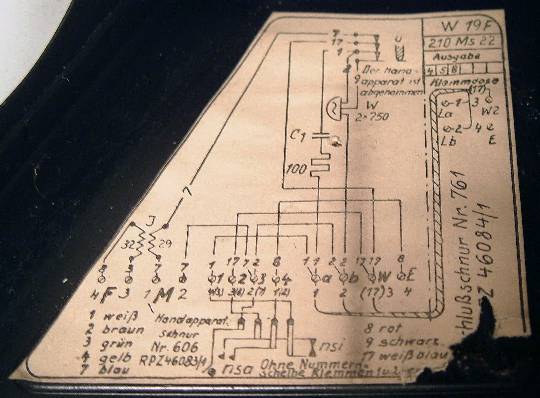 W 19 F
210 Ms 22
Ausgabe
4 5 8
Klemmdose
(17)
1 3
La W2
2 4
Lb E
7
17
1
2
9
Der Hand-
apparat ist
abgenommen
W
2×750
C1
100
7
J
32 29
8 3 7 7 1 17 17 2 8 1 1 2 2 17 17 8
1 2 3 4 a b W E
4 F 3 1 M 2
1 2 (17) 3 4
1 weiß
2 braun
3 grün
4 gelb
7 blau
Handapparat.
Schnur
Nr. 606
RPZ46083/1
nsa
nsi
Ohne Nummern:
8 rot
9 schwarz
17 weißblau
hlußschnur Nr. 761
Z 46084/1